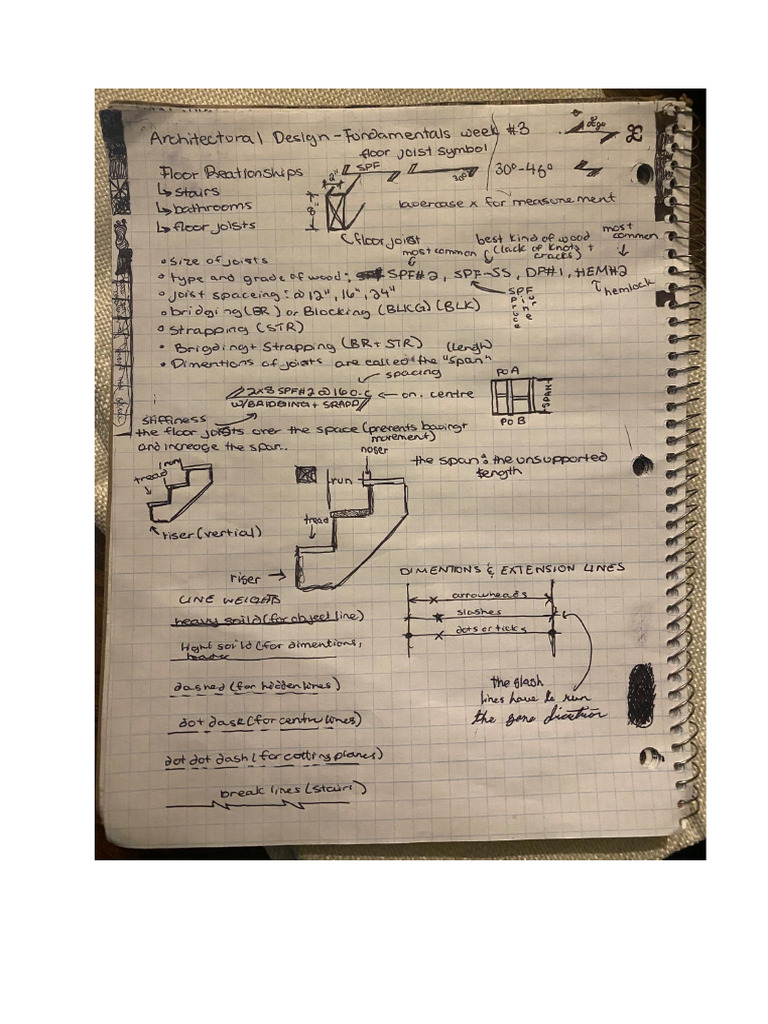 Architectural Design - Fundamentals week #3
floor joist symbol
Floor Reationships
2"
SPF
30°
30°-45°
↳ stairs
↳ bathrooms
8"
lowercase x for measurement
↳ floor joists
floor joist
best kind of wood
most
common
most common
(lack of knots +
cracks)
• size of joists
• type and grade of wood: SPF#2, SPF-SS, DF#1, HEM#2
hemlock
• joist spaceing: @ 12", 16", 24"
SPF
pruce
ine
ur
• bridging (BR) or Blocking (BLKG) (BLK)
• Strapping (STR)
• Brigding + Strapping (BR + STR) (lengh)
• Dimentions of joists are called the "span"
spacing
2x8 SPF#2 @ 16 O.C ← on. centre
W/BRIDGING + SRAPP
Po A
SPAN
Po B
stiffiness
the floor joists over the space (prevents bowing +
movement)
and increage the span..
noser
run
tread
run
the span: the unsupported
length
tread
riser (vertial)
riser →
DIMENTIONS & EXTENSION LINES
LINE WEIGHTS
arrowheads
heavy soild (for object line)
slashes
dots or ticks
light soild (for dimentions,
the slash
dashed (for hidden lines)
lines have to run
the same dirextion
dot dase (for centre lines)
dot dot dash (for cotting planes)
break lines (stairs)